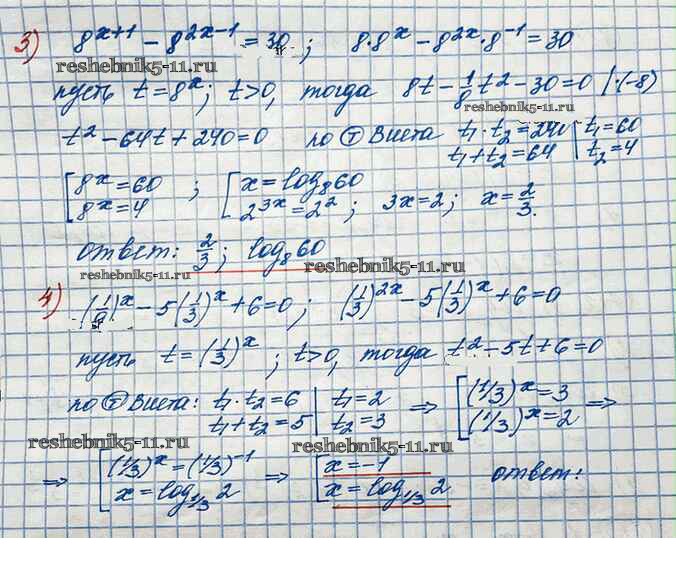 3) 8^(x+1) − 8^(2x−1) = 30; 8·8^x − 8^(2x)·8^(−1) = 30
reshebnik5-11.ru
пусть t = 8^x; t>0, тогда 8t − 1/8 t² − 30 = 0 |·(−8)
reshebnik5-11.ru
t² − 64t + 240 = 0 по Т Виета t₁·t₂ = 240 | t₁ = 60
t₁ + t₂ = 64 | t₂ = 4
reshebnik5-11.ru
[ 8^x = 60 ; [ x = log₈60
8^x = 4 2^(3x) = 2²; 3x = 2; x = 2/3.
ответ: 2/3; log₈60
reshebnik5-11.ru
reshebnik5-11.ru
4) (1/9)^x − 5(1/3)^x + 6 = 0; (1/3)^(2x) − 5(1/3)^x + 6 = 0
пусть t = (1/3)^x; t>0, тогда t² − 5t + 6 = 0
по Т Виета: t₁·t₂ = 6 | t₁ = 2 ⇒ [ (1/3)^x = 3 ⇒
t₁ + t₂ = 5 | t₂ = 3 (1/3)^x = 2
reshebnik5-11.ru
reshebnik5-11.ru
⇒ [ (1/3)^x = (1/3)^(−1) ⇒ [ x = −1 ответ!
x = log_(1/3) 2 x = log_(1/3) 2